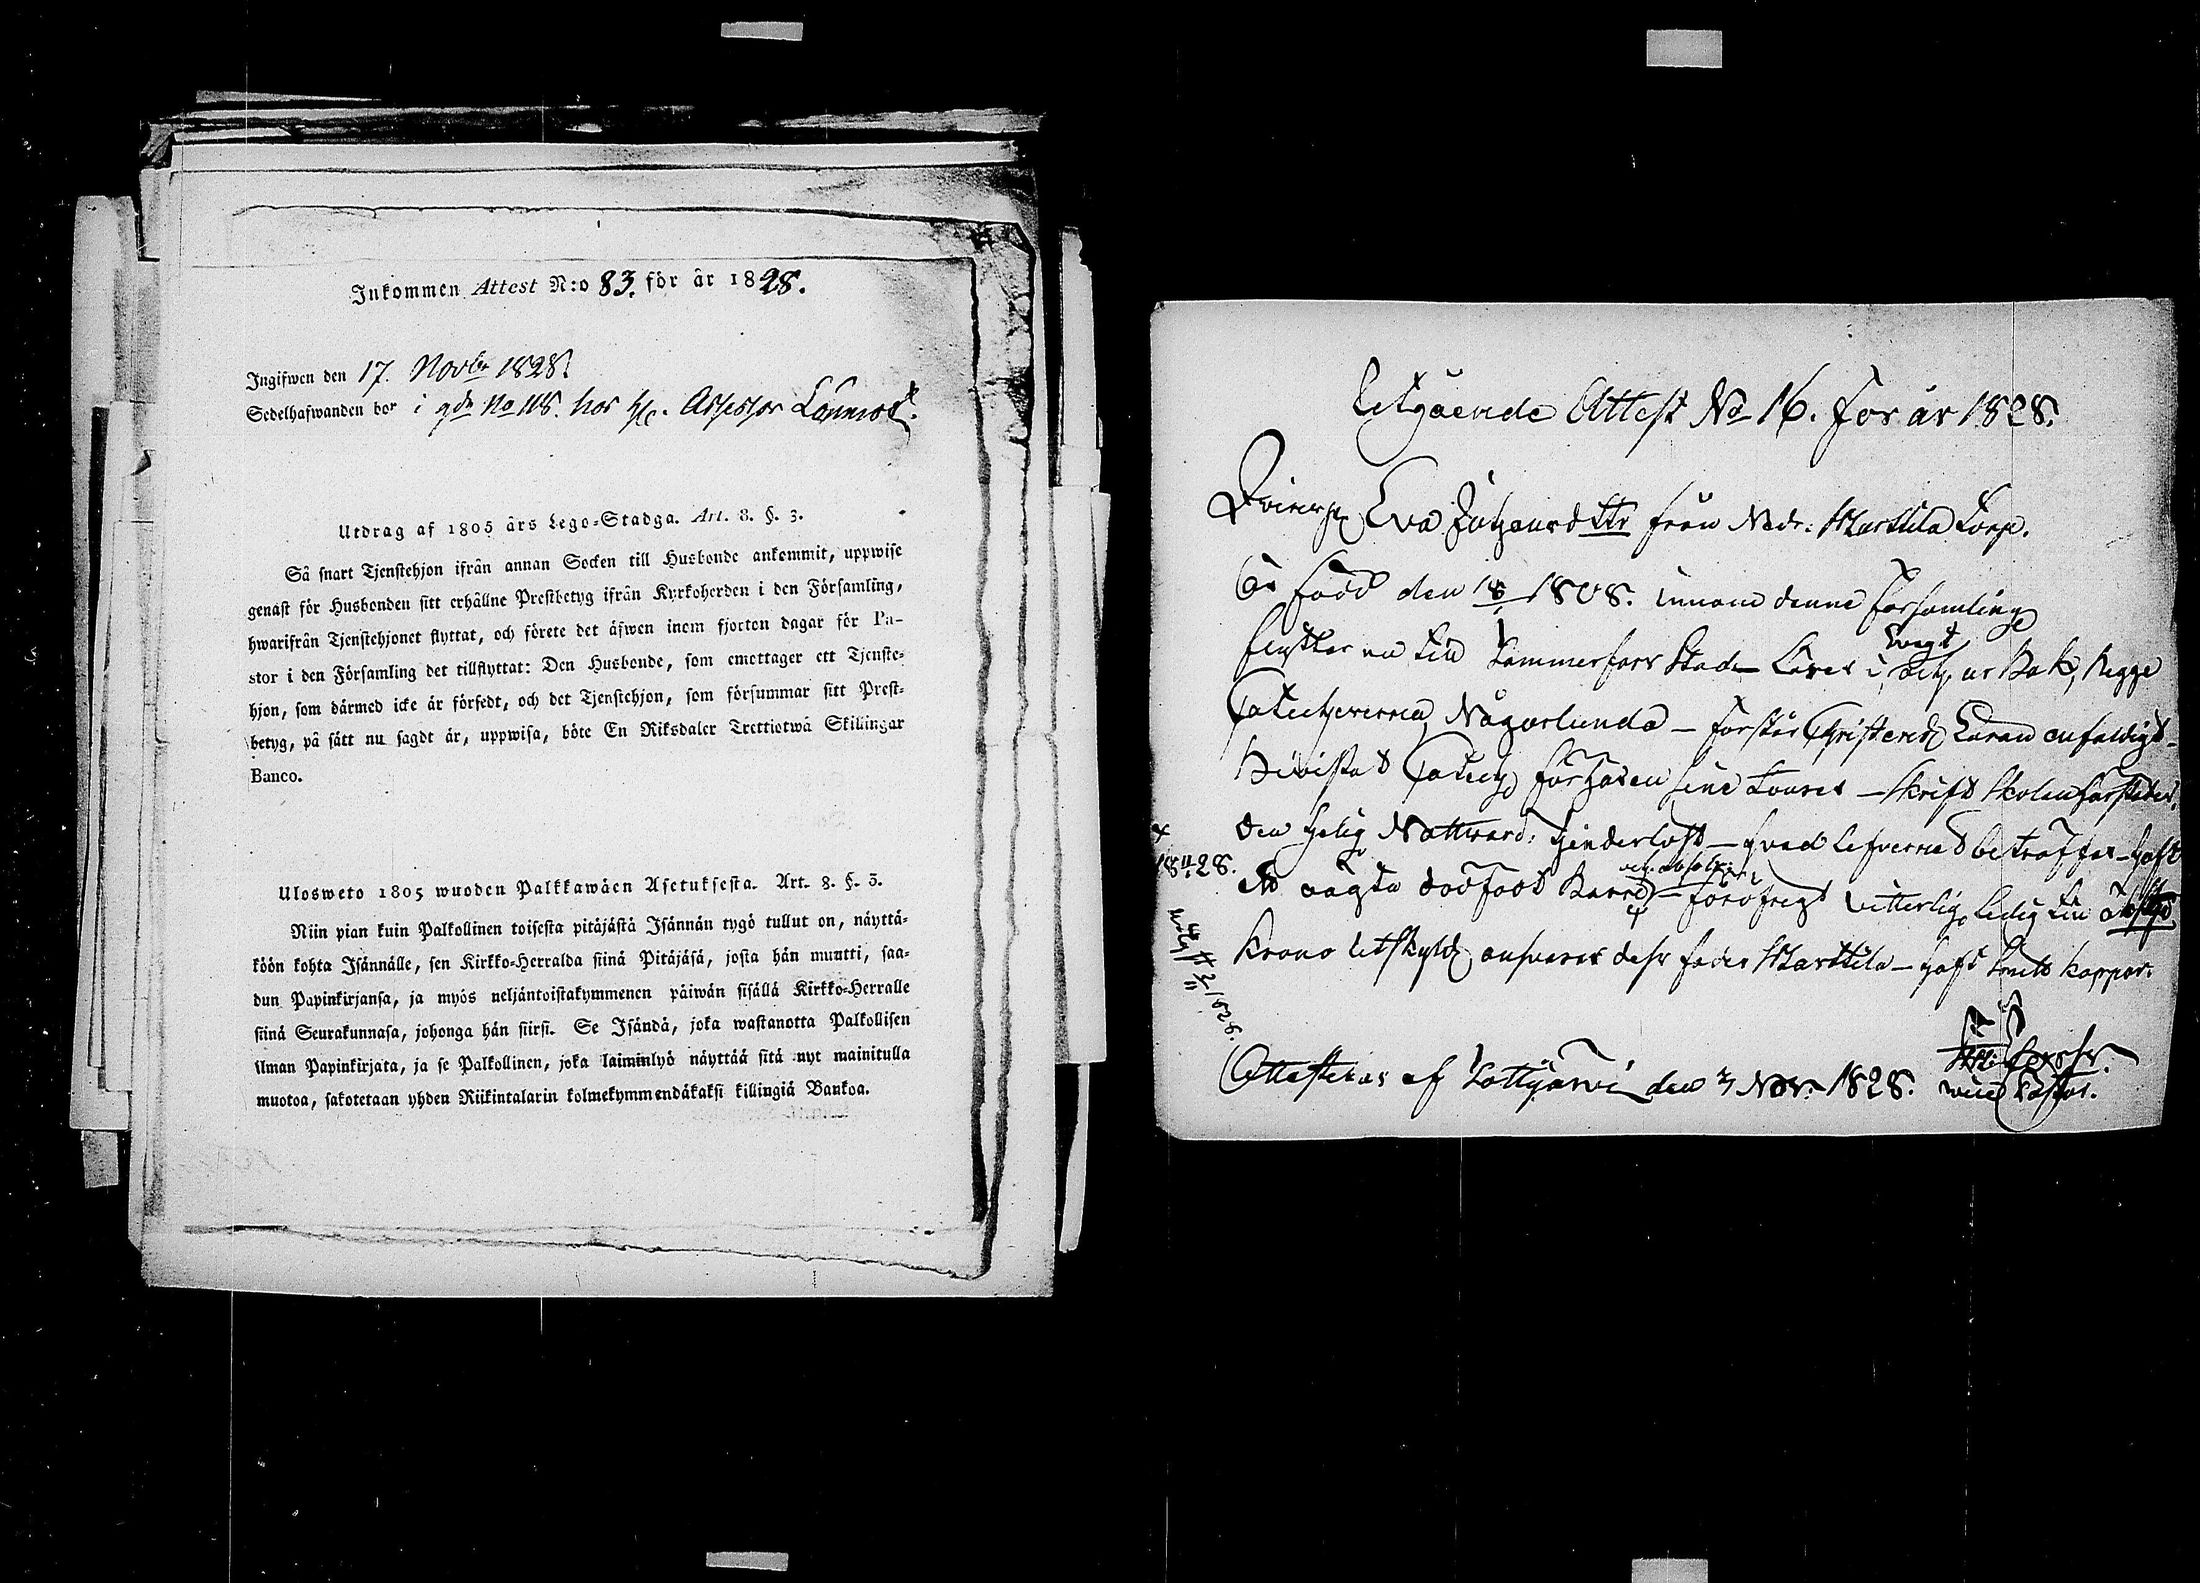 Inkommen Attest N:o 83. för år 1828.
Ingifwen den 17. Novbr 1828.
Sedelhafwanden bor i gdn No 118. hos H/c. Assessor
Utdrag af 1805 års Lego-Stadga. Art. 8. §. 3.
Så snart Tjenstehjon ifrån annan Socken till Husbonde ankommit, uppwise
genast för Husbonden sitt erhållne Prestbetyg ifrån Kyrkoherden i den Församling,
hwarifrån Tjenstehjonet flyttat, och förete det äfwen inom fjorton dagar för Pa-
stor i den Församling det tillflyttat: Den Husbonde, som emottager ett Tjenste-
hjon, som därmed icke är försedt, och det Tjenstehjon, som försummar sitt Prest-
betyg, på sätt nu sagdt är, uppwisa, böte En Riksdaler Trettiotwå Skillingar
Banco.
Ulosweto 1805 wuoden Palkkawäen Asetuksesta. Art. 8. §. 3.
Niin pian kuin Palkollinen toisesta pitäjästä Isännän tygö tullut on, näyttä-
köön kohta Isännälle, sen Kirkko-Herralda siinä Pitäjäsä, josta hän muutti, saa-
dun Papinkirjansa, ja myös neljäntoistakymmenen päiwän sisällä Kirkko-Herralle
siinä Seurakunnasa, johonga hän siirsi. Se Isändä, joka wastanotta Palkollisen
ilman Papinkirjata, ja se Palkollinen, joka laiminlyö näyttää sitä nyt mainitulla
muotoa, sakotetaan yhden Riikintalarin kolmekymmendäkaksi killingiä Bankoa.
Utgående Attest No 16. för år 1828.
Qvinsp Eva från Nedr: Marttila Torp.
är född den 18/1 1808. innom denne församling
flyttar nu till Tammerfors Stad - Läser i bok, begge
Någorlunda - förstår Christend Läran enfaldigt -
Bivistat förhören sine Touren - Skrift Skolen
den helig Nattvard: hinderlöst - hvad lefvernet beträffar - haft
ett oägta dödfödt barn - öfrigt vitterlig ledig till
Krono Utskyld ansvarar dess fader Marttila - haft koppor.
Attesteras af Lottjärvi den 3 Nov: 1828.
vice Pastor.
18/11 28.